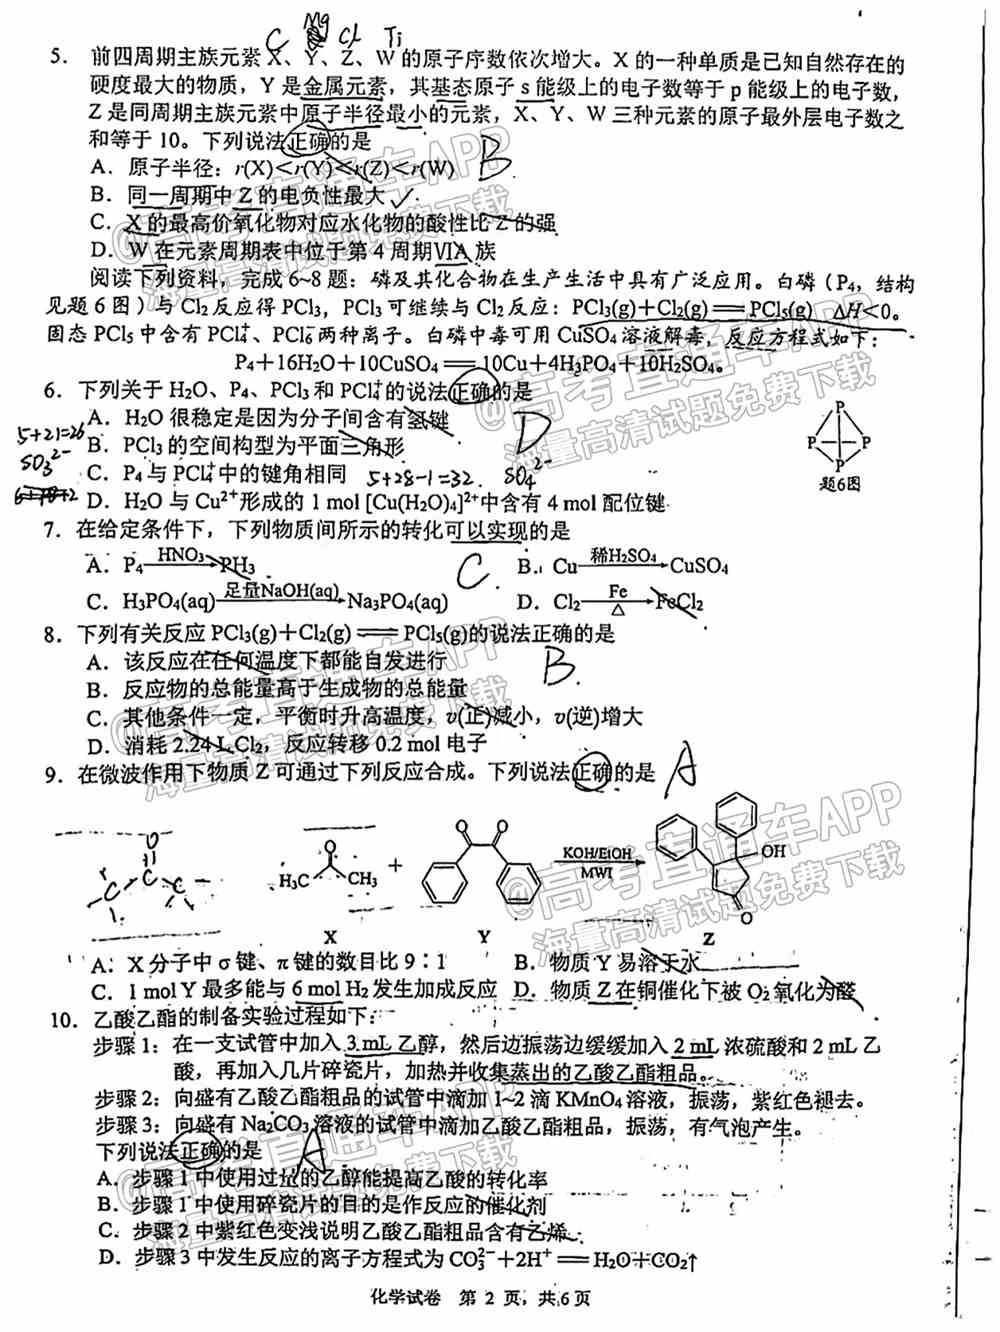 C Mg Cl Ti
5. 前四周期主族元素 X、Y、Z、W 的原子序数依次增大。X 的一种单质是已知自然存在的
硬度最大的物质，Y 是金属元素，其基态原子 s 能级上的电子数等于 p 能级上的电子数，
Z 是同周期主族元素中原子半径最小的元素，X、Y、W 三种元素的原子最外层电子数之
和等于 10。下列说法正确的是
A．原子半径：r(X)＜r(Y)＜r(Z)＜r(W) B
B．同一周期中 Z 的电负性最大 ✓
C．X 的最高价氧化物对应水化物的酸性比 Z 的强
D．W 在元素周期表中位于第 4 周期ⅥA 族
阅读下列资料，完成 6~8 题：磷及其化合物在生产生活中具有广泛应用。白磷（P₄，结构
见题 6 图）与 Cl₂ 反应得 PCl₃，PCl₃ 可继续与 Cl₂ 反应：PCl₃(g)＋Cl₂(g)══PCl₅(g) ΔH＜0。
固态 PCl₅ 中含有 PCl₄⁺、PCl₆⁻两种离子。白磷中毒可用 CuSO₄ 溶液解毒，反应方程式如下：
P₄＋16H₂O＋10CuSO₄══10Cu＋4H₃PO₄＋10H₂SO₄。
6．下列关于 H₂O、P₄、PCl₃ 和 PCl₄⁺的说法正确的是
A．H₂O 很稳定是因为分子间含有氢键
5+21=26 B．PCl₃ 的空间构型为平面三角形 D
SO₃²⁻ C．P₄ 与 PCl₄⁺中的键角相同 5+28-1=32. SO₄²⁻
D．H₂O 与 Cu²⁺形成的 1 mol [Cu(H₂O)₄]²⁺中含有 4 mol 配位键
P P P P
题6图
7．在给定条件下，下列物质间所示的转化可以实现的是
A．P₄ —HNO₃→ PH₃ C B．Cu —稀H₂SO₄→ CuSO₄
C．H₃PO₄(aq) —足量NaOH(aq)→ Na₃PO₄(aq) D．Cl₂ —Fe/△→ FeCl₂
8．下列有关反应 PCl₃(g)＋Cl₂(g)⇌PCl₅(g)的说法正确的是
A．该反应在任何温度下都能自发进行 B.
B．反应物的总能量高于生成物的总能量
C．其他条件一定，平衡时升高温度，v(正)减小，v(逆)增大
D．消耗 2.24 L Cl₂，反应转移 0.2 mol 电子
9．在微波作用下物质 Z 可通过下列反应合成。下列说法正确的是 A
O H₃C CH₃ ＋ O O KOH/EtOH MWI OH O
X Y Z
A．X 分子中 σ 键、π 键的数目比 9∶1 B．物质 Y 易溶于水
C．1 mol Y 最多能与 6 mol H₂ 发生加成反应 D．物质 Z 在铜催化下被 O₂ 氧化为醛
10．乙酸乙酯的制备实验过程如下：
步骤 1：在一支试管中加入 3 mL 乙醇，然后边振荡边缓缓加入 2 mL 浓硫酸和 2 mL 乙
酸，再加入几片碎瓷片，加热并收集蒸出的乙酸乙酯粗品。
步骤 2：向盛有乙酸乙酯粗品的试管中滴加 1~2 滴 KMnO₄ 溶液，振荡，紫红色褪去。
步骤 3：向盛有 Na₂CO₃ 溶液的试管中滴加乙酸乙酯粗品，振荡，有气泡产生。
下列说法正确的是 A
A．步骤 1 中使用过量的乙醇能提高乙酸的转化率
B．步骤 1 中使用碎瓷片的目的是作反应的催化剂
C．步骤 2 中紫红色变浅说明乙酸乙酯粗品含有乙烯
D．步骤 3 中发生反应的离子方程式为 CO₃²⁻＋2H⁺══H₂O＋CO₂↑
化学试卷 第 2 页，共 6 页
@高考直通车APP
海量高清试题免费下载
@高考直通车APP
海量高清试题免费下载
@高考直通车APP
海量高清试题免费下载
@高考直通车APP
海量高清试题免费下载
@高考直通车APP
海量高清试题免费下载